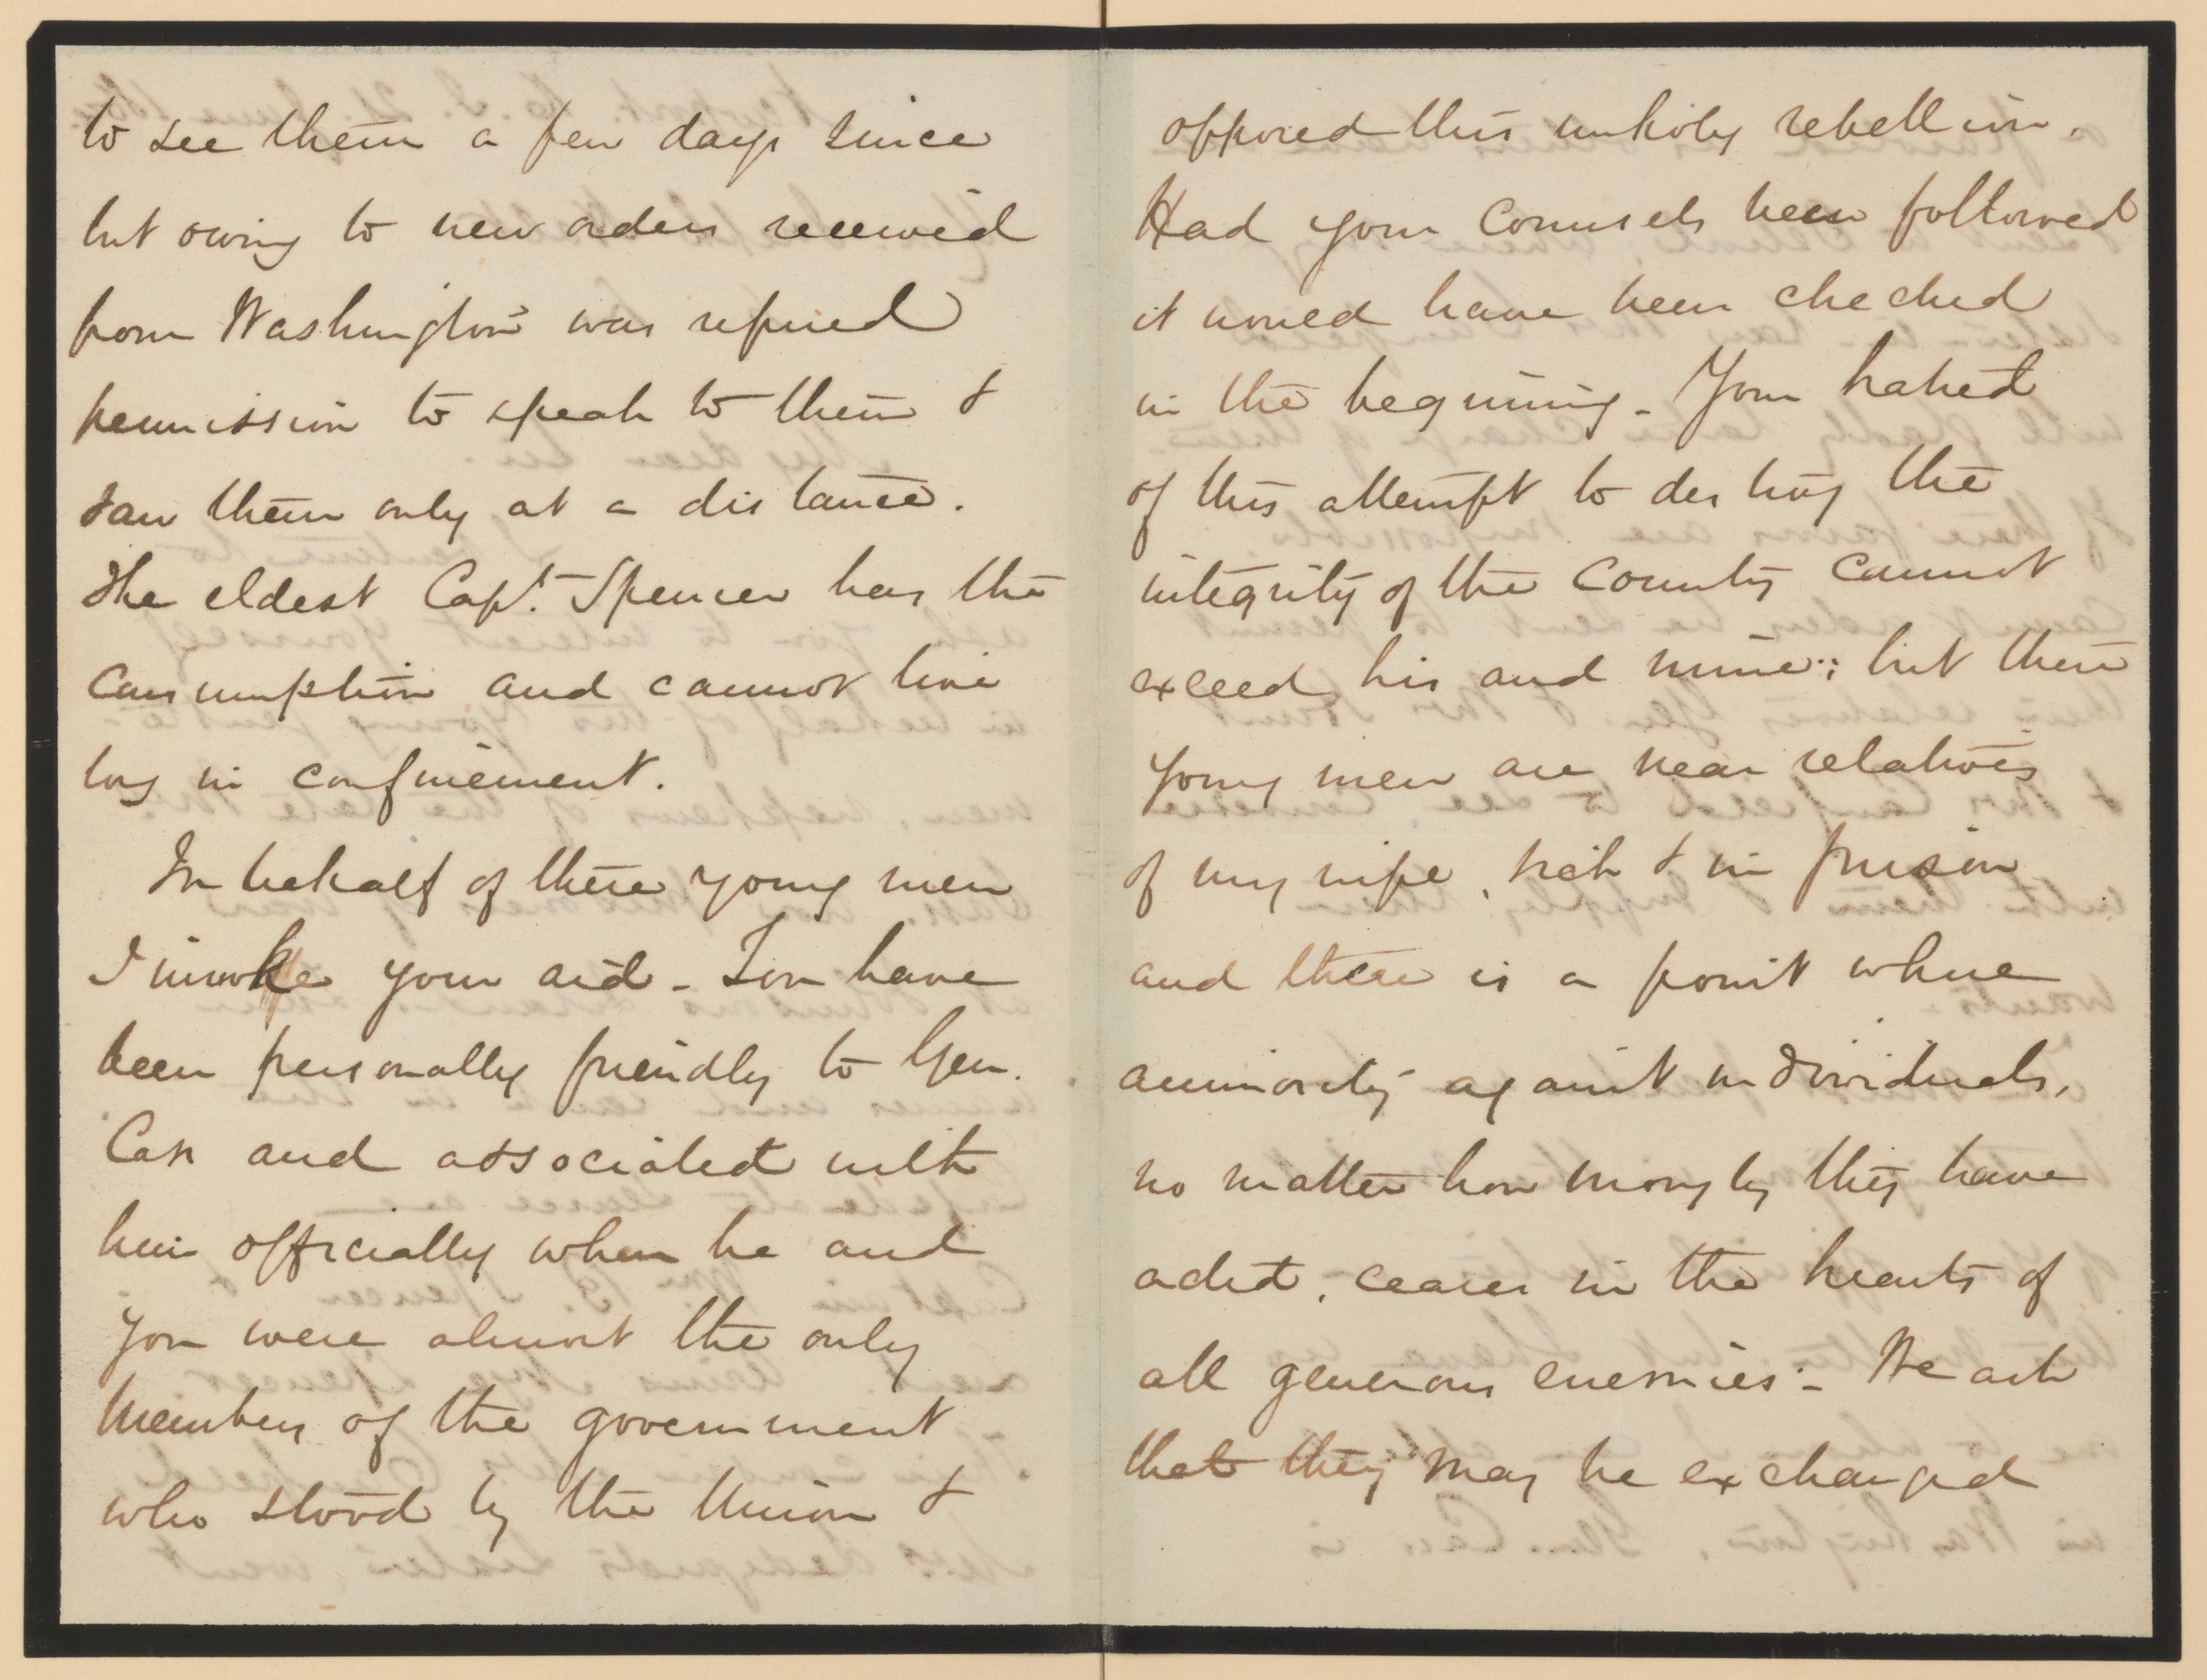 to see them a few days since
but owing to new orders received
from Washington was refused
permission to speak to them &
saw them only at a distance.
The eldest Capt. Spencer has the
consumption and cannot live
long in confinement.
In behalf of these young men
I invoke your aid - You have
been personally friendly to Gen.
Cass and associated with
him officially when he and
you were almost the only
members of the government
who stood by the Union &
opposed this unholy rebellion.
Had your counsels been followed
it would have been checked
in the beginning - Your hatred
of this attempt to destroy the
integrity of the Country cannot
exceed his and mine; but these
young men are near relatives
of my wife, sick & in prison
and there is a point where
animosity against individuals,
no matter how wrongly they have
acted, ceases in the hearts of
all generous enemies - We ask
that they may be exchanged